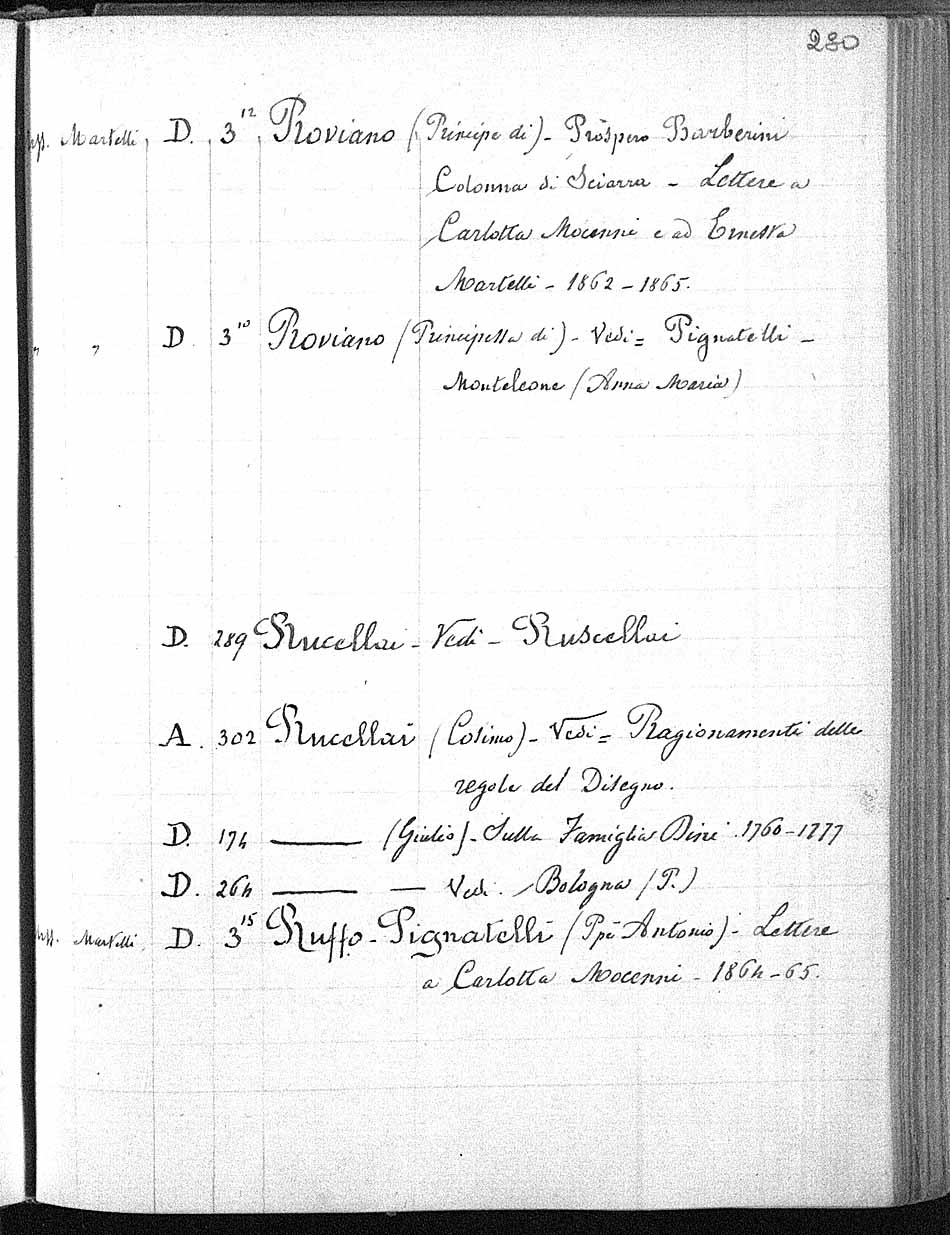 280
Mss. Martelli D. 3¹² Roviano (Principe di) - Prospero Barberini
Colonna di Sciarra - Lettere a
Carlotta Mocenni e ad Ernesta
Martelli - 1862 - 1865.
" " D 3¹⁰ Roviano (Principessa di) - Vedi = Pignatelli -
Monteleone (Anna Maria)
D. 289 Rucellai - Vedi - Ruscellai
A. 302 Rucellai (Cosimo) - Vedi = Ragionamenti delle
regole del Disegno.
D. 174 ——— (Giulio) - Sulla Famiglia Dini 1760-1777
D. 264 ——— — Vedi. Bologna (P.)
Mss. Martelli D. 3¹⁵ Ruffo - Pignatelli (Ppe Antonio) - Lettere
a Carlotta Mocenni - 1864-65.